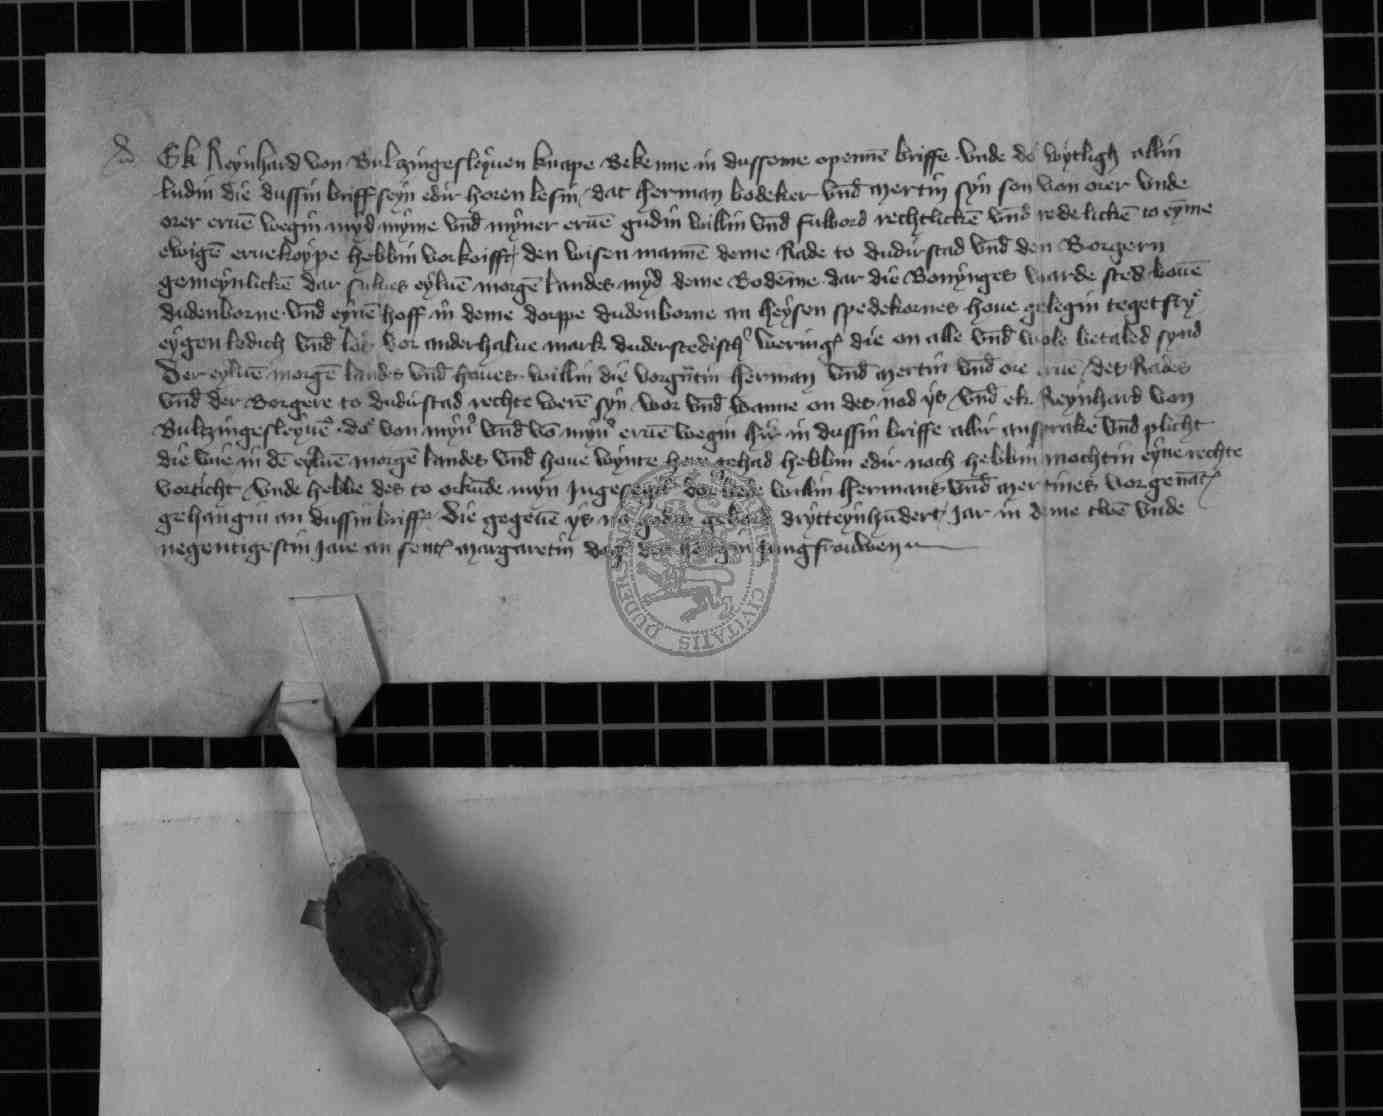 Ek Reynhard von Bultzingesleyuen knape Bekenne in dusseme openē briffe vnde do wytligh allin
ludin die dussin briff seyn edir horen lesin dat Herman bodeker vnd̄ Mertin syn son von orer vnde
orer eruē wegin myd myme vnd̄ myner eruē gudin willin vnd̄ fulbord rechtlickē vnd̄ redelickē to eyme
ewigē eruekoype hebbin vorkoifft den wisen mannē deme Rade to dudirstad vnd̄ den Borgern
gemeynlickē dar eyluē morgē landes myd deme Bodēme dar die warde sted bouē
dudenborne vnd̄ eynē hoff in deme dorppe dudenborne an Heysen spedekornes houe gelegin
eygen ledich vnd̄ los vor anderhalue mark duderstedisch die on alle vnd̄ wole betaled synd
Der eyluē morgē landes vnd̄ houes willin die Herman vnd̄ Mertin vnd̄ ore eruē des Rades
vnd̄ der Borgere to dudirstad rechte werē syn wor vnd̄ wanne on des nod ys vnd̄ ek Reynhard von
Bultzingesleyuē do von vnd̄ vō eruē wegin hir in dussin briffe allir ansprake vnd̄ plicht
die wie in dē eyluē morgē landes vnd̄ houe gehad hebbin edir noch hebbin mochtin eyne rechte
vorticht vnde hebbe des to orkūde myn Ingesegil dor willin Hermans vnd̄ Mertines
gehangin an dussin briff Die gegeuē ys na godis drytteynhūdert Jar in deme twē vnde
negentigestin Jare an sent Margaretin der Jungfrouwen
CIVITATIS DUDER